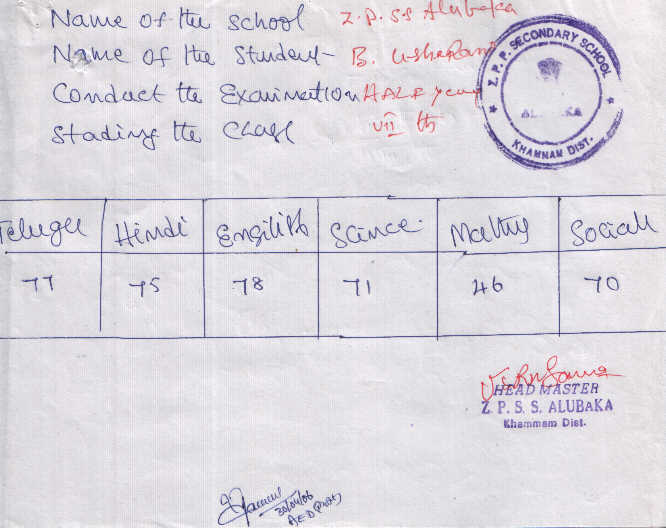 Name of the school Z.P.S.S Alubaka
Name of the Student B. Usharani
Conduct the Exainination HALF year
Stading the Class VII th
Z. P. P. SECONDARY SCHOOL
ALUBAKA
KHAMMAM DIST.
Telugu Hindi Engilish Science Maths Sociall
77 75 78 71 46 70
HEAD MASTER
Z. P. S. S. ALUBAKA
Khammam Dist.
30/04/06